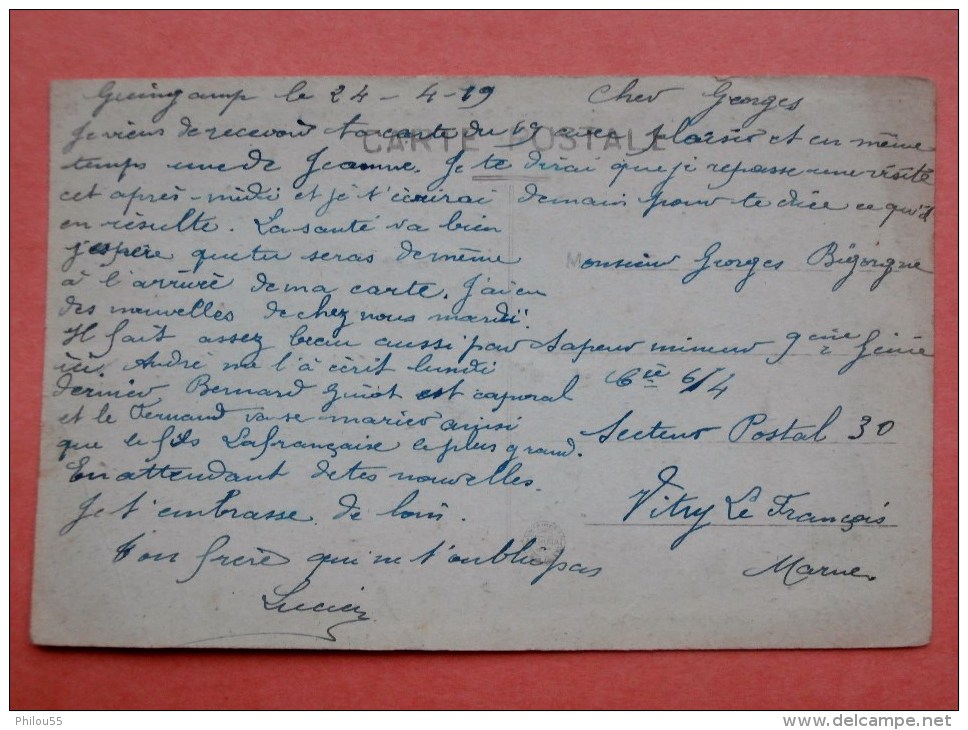 Guingamp le 24-4-19 Cher Georges
CARTE POSTALE
Je viens de recevoir ta carte du 19 avec plaisir et en même
temps une de Jeanne. Je te dirai que je repasse une visite
cet après-midi et je t'écrirai demain pour te dire ce qu'il
en résulte. La santé va bien
j'espère que tu seras de même
à l'arrivé de ma carte. J'ai eu
des nouvelles de chez nous mardi.
Il fait assez beau aussi par
ici. André me l'à écrit lundi
dernier Bernard Guiot est caporal
et le Fernand va se marier ainsi
que le fils Lafrançaise le plus grand.
En attendant de tes nouvelles.
Je t'embrasse de loin.
Ton frère qui ne t'oublie pas
Lucien
Monsieur Georges Bigorgne
Sapeur mineur 9ème Génie
Cie 6/4
Secteur Postal 30
Vitry Le François
Marne
Philou55
http://www.delcampe.net